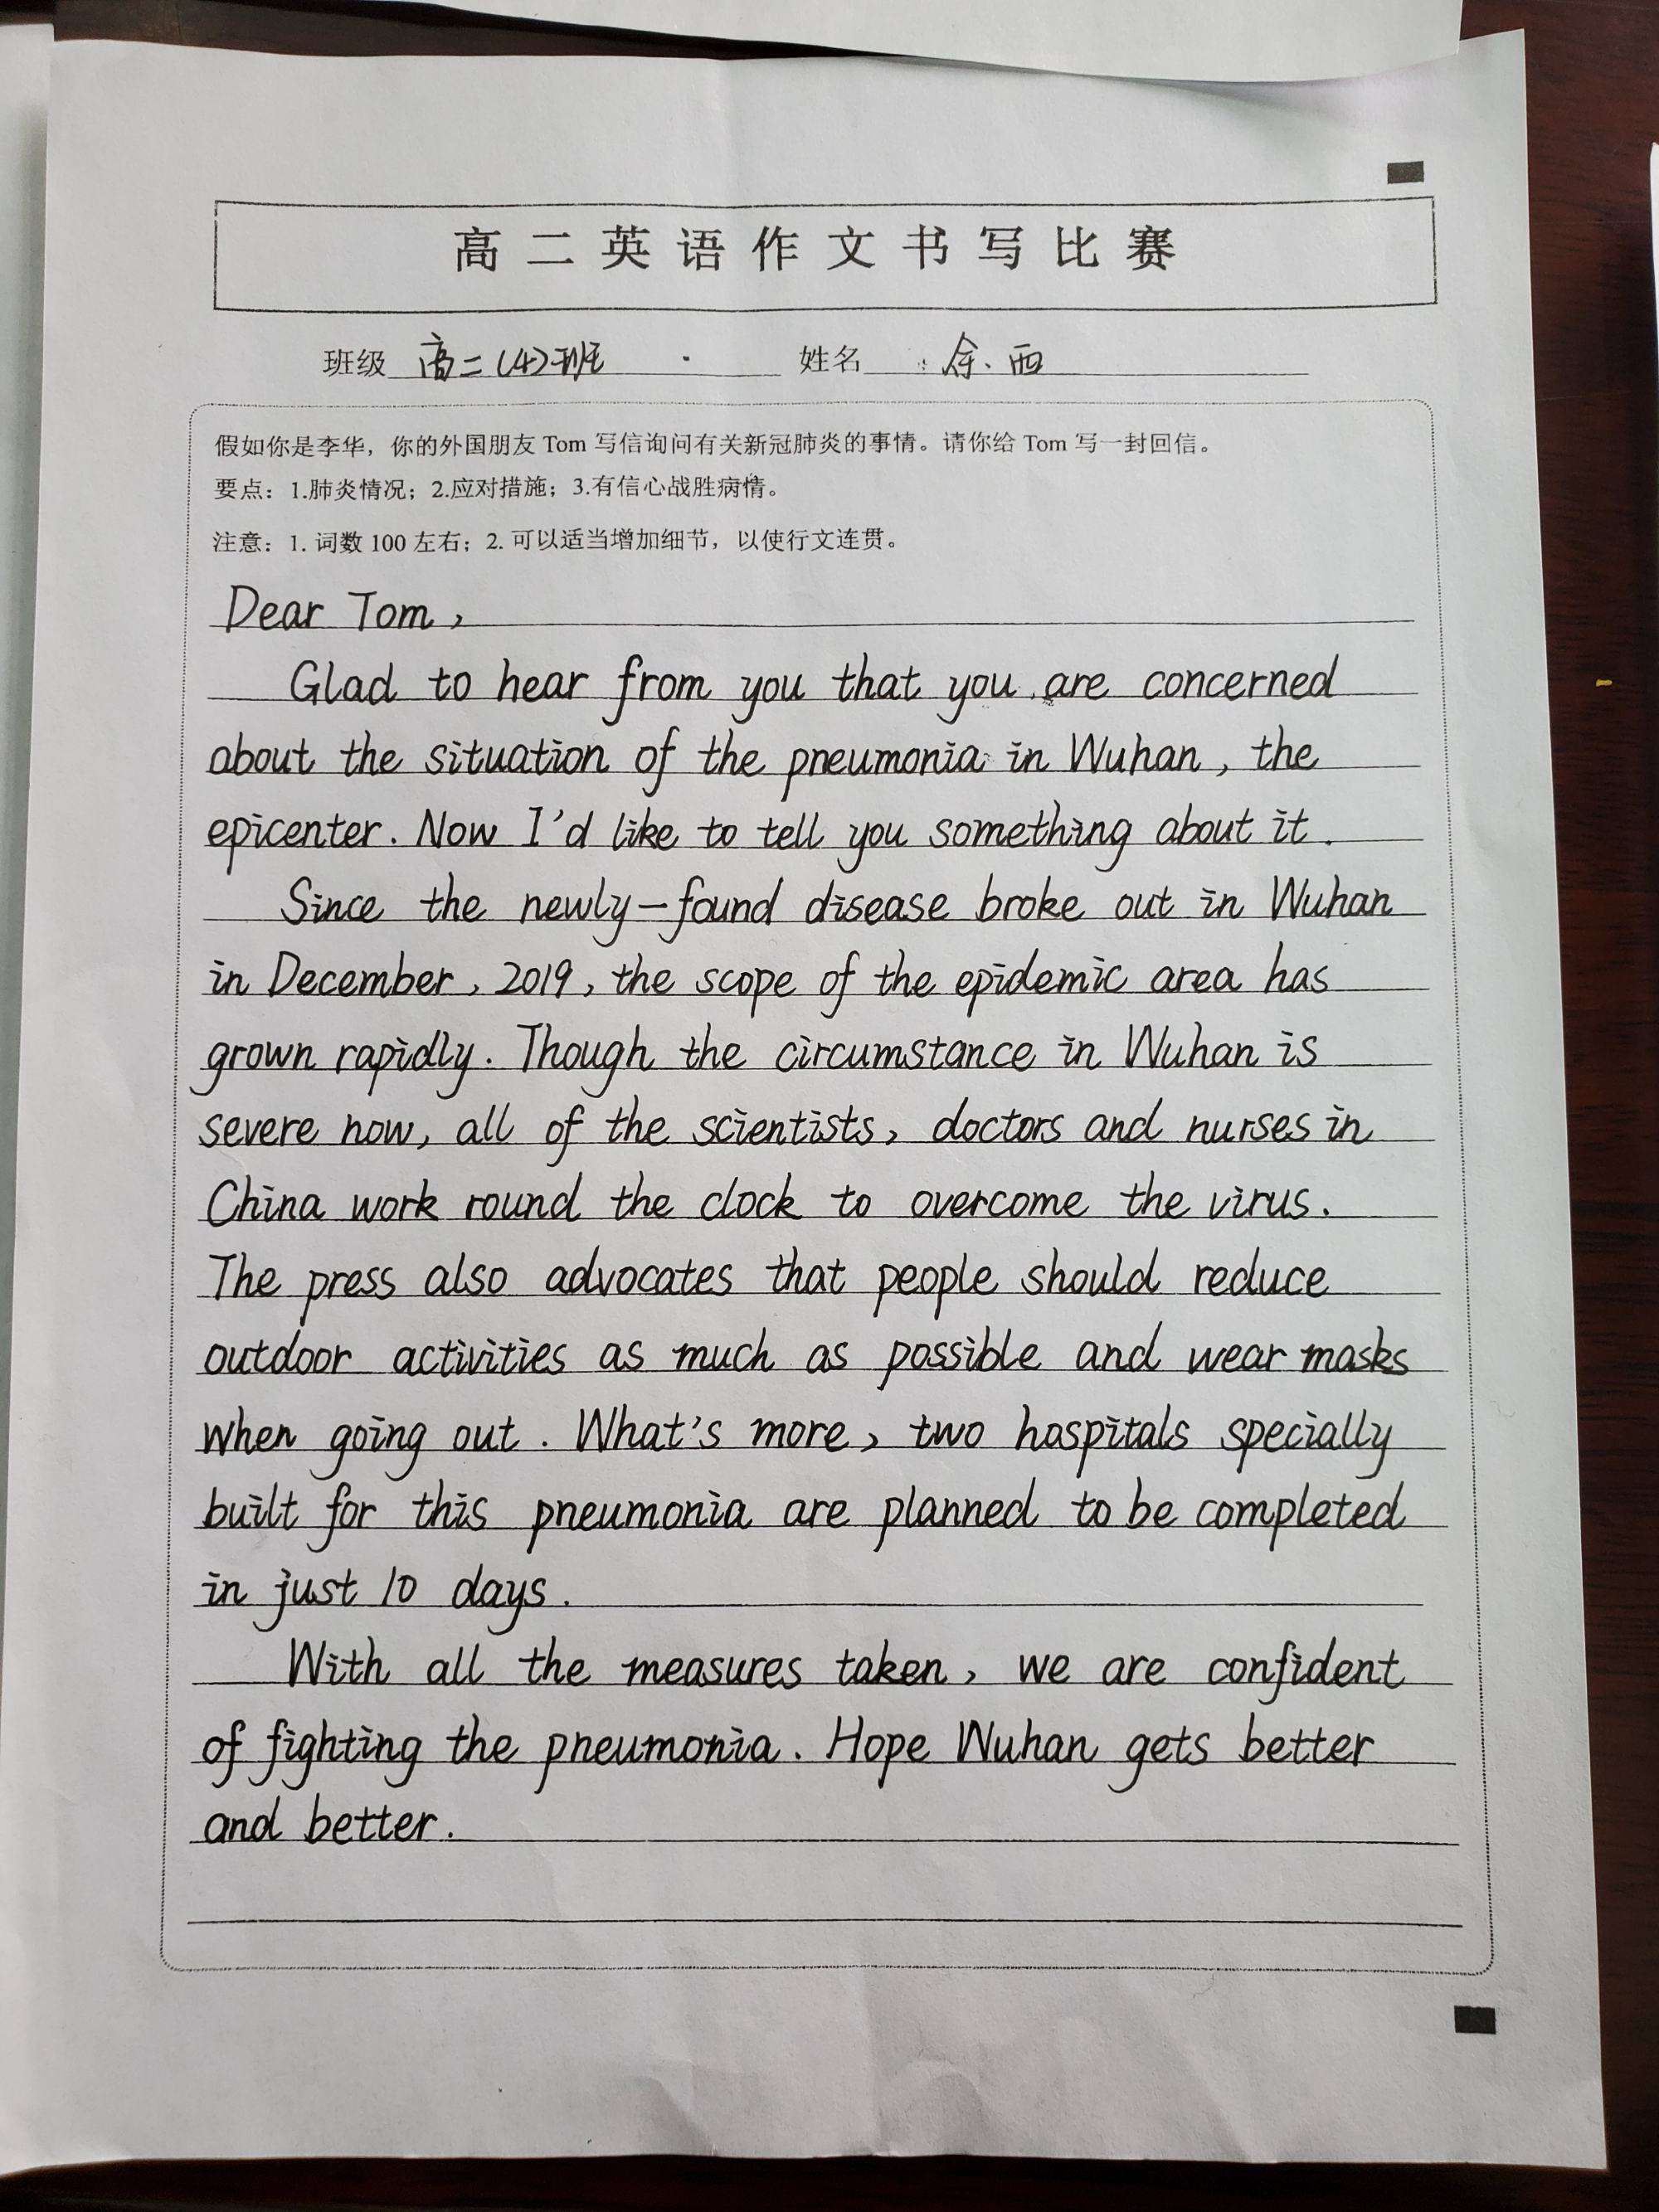 高二英语作文书写比赛
班级 高二(4)班 姓名 余西
假如你是李华，你的外国朋友 Tom 写信询问有关新冠肺炎的事情。请你给 Tom 写一封回信。
要点：1.肺炎情况；2.应对措施；3.有信心战胜病情。
注意：1. 词数 100 左右；2. 可以适当增加细节，以使行文连贯。
Dear Tom,
Glad to hear from you that you are concerned
about the situation of the pneumonia in Wuhan, the
epicenter. Now I'd like to tell you something about it.
Since the newly-found disease broke out in Wuhan
in December, 2019, the scope of the epidemic area has
grown rapidly. Though the circumstance in Wuhan is
severe now, all of the scientists, doctors and nurses in
China work round the clock to overcome the virus.
The press also advocates that people should reduce
outdoor activities as much as possible and wear masks
when going out. What's more, two hospitals specially
built for this pneumonia are planned to be completed
in just 10 days.
With all the measures taken, we are confident
of fighting the pneumonia. Hope Wuhan gets better
and better.